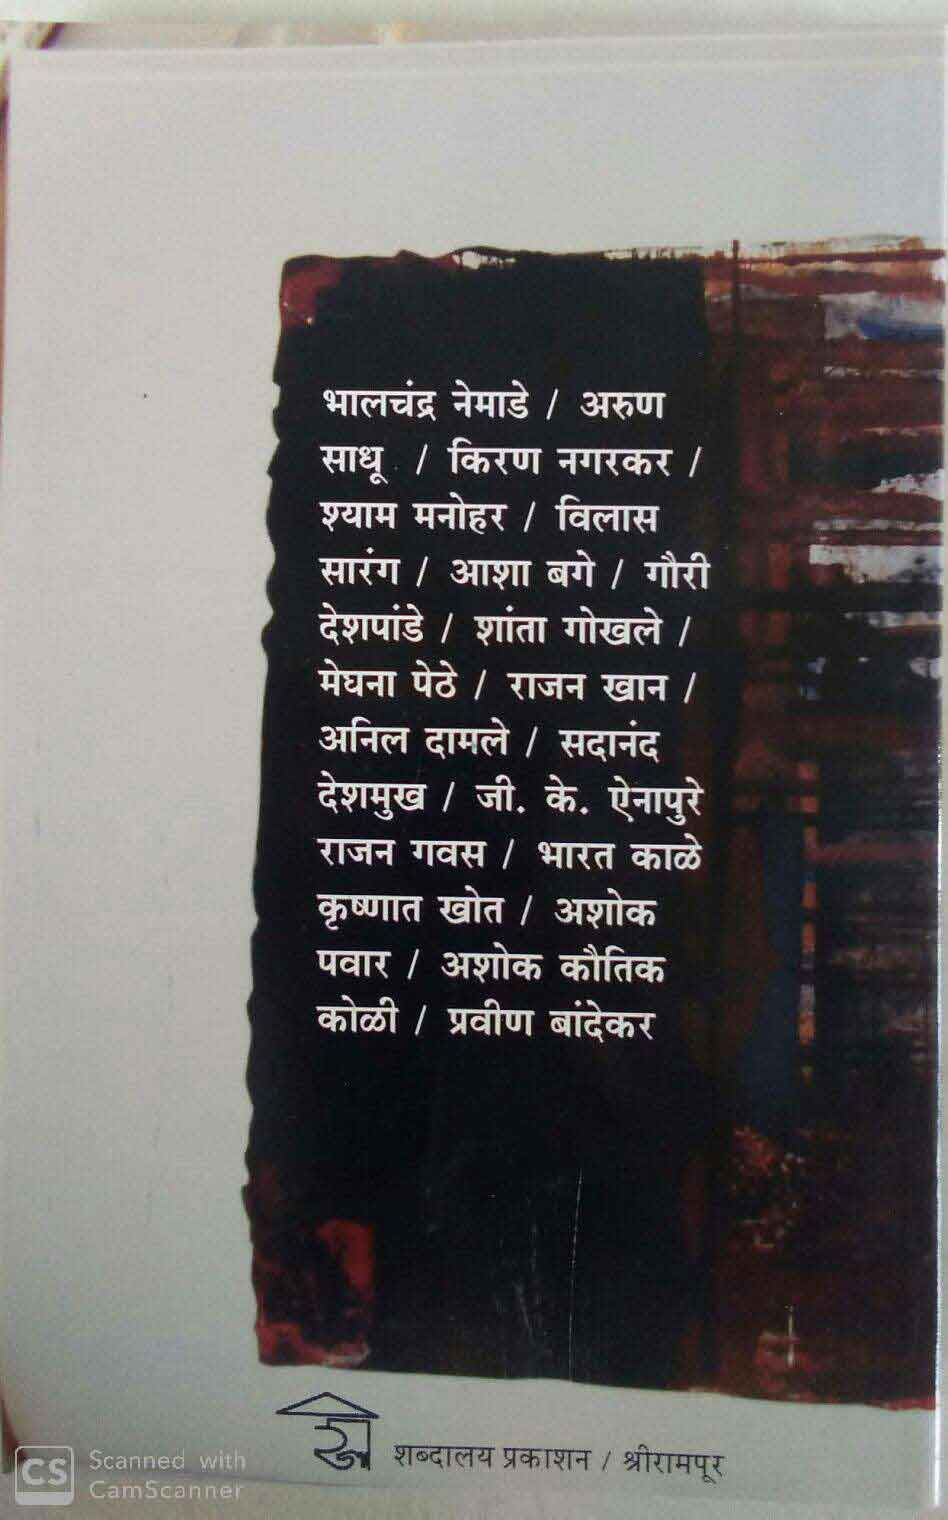 भालचंद्र नेमाडे / अरुण
साधू / किरण नगरकर /
श्याम मनोहर / विलास
सारंग / आशा बगे / गौरी
देशपांडे / शांता गोखले /
मेघना पेठे / राजन खान /
अनिल दामले / सदानंद
देशमुख / जी. के. ऐनापुरे
राजन गवस / भारत काळे
कृष्णात खोत / अशोक
पवार / अशोक कौतिक
कोळी / प्रवीण बांदेकर
शब्दालय प्रकाशन / श्रीरामपूर
CS Scanned with
CamScanner